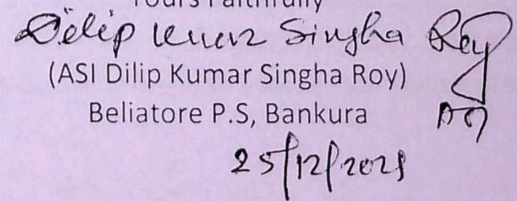 Yours Faithfully
Dilip Kumar Singha Roy
(ASI Dilip Kumar Singha Roy)
Beliatore P.S, Bankura
25/12/2025